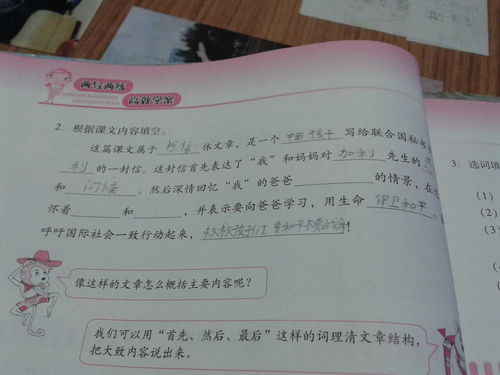 两导两练
高效学案
2. 根据课文内容填空。
这篇课文属于 书信 体文章，是一个 中国孩子 写给联合国秘书
利 的一封信。这封信首先表达了“我”和妈妈对 加利 先生的
和 问候 。然后深情回忆“我”的爸爸 的情景，在
怀着 和 ，并表示要向爸爸学习，用生命 保卫和平 。
呼吁国际社会一致行动起来， 救救孩子们 要和平不要战争 !
像这样的文章怎么概括主要内容呢？
我们可以用“首先、然后、最后”这样的词理清文章结构，
把大致内容说出来。
3. 选词填
(1)
(2)
(3